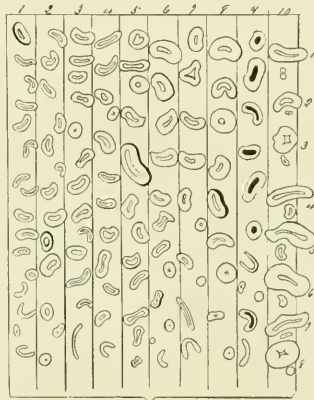 1 2 3 4 5 6 7 8 9 10
1
2
3
4
5
6
7
8